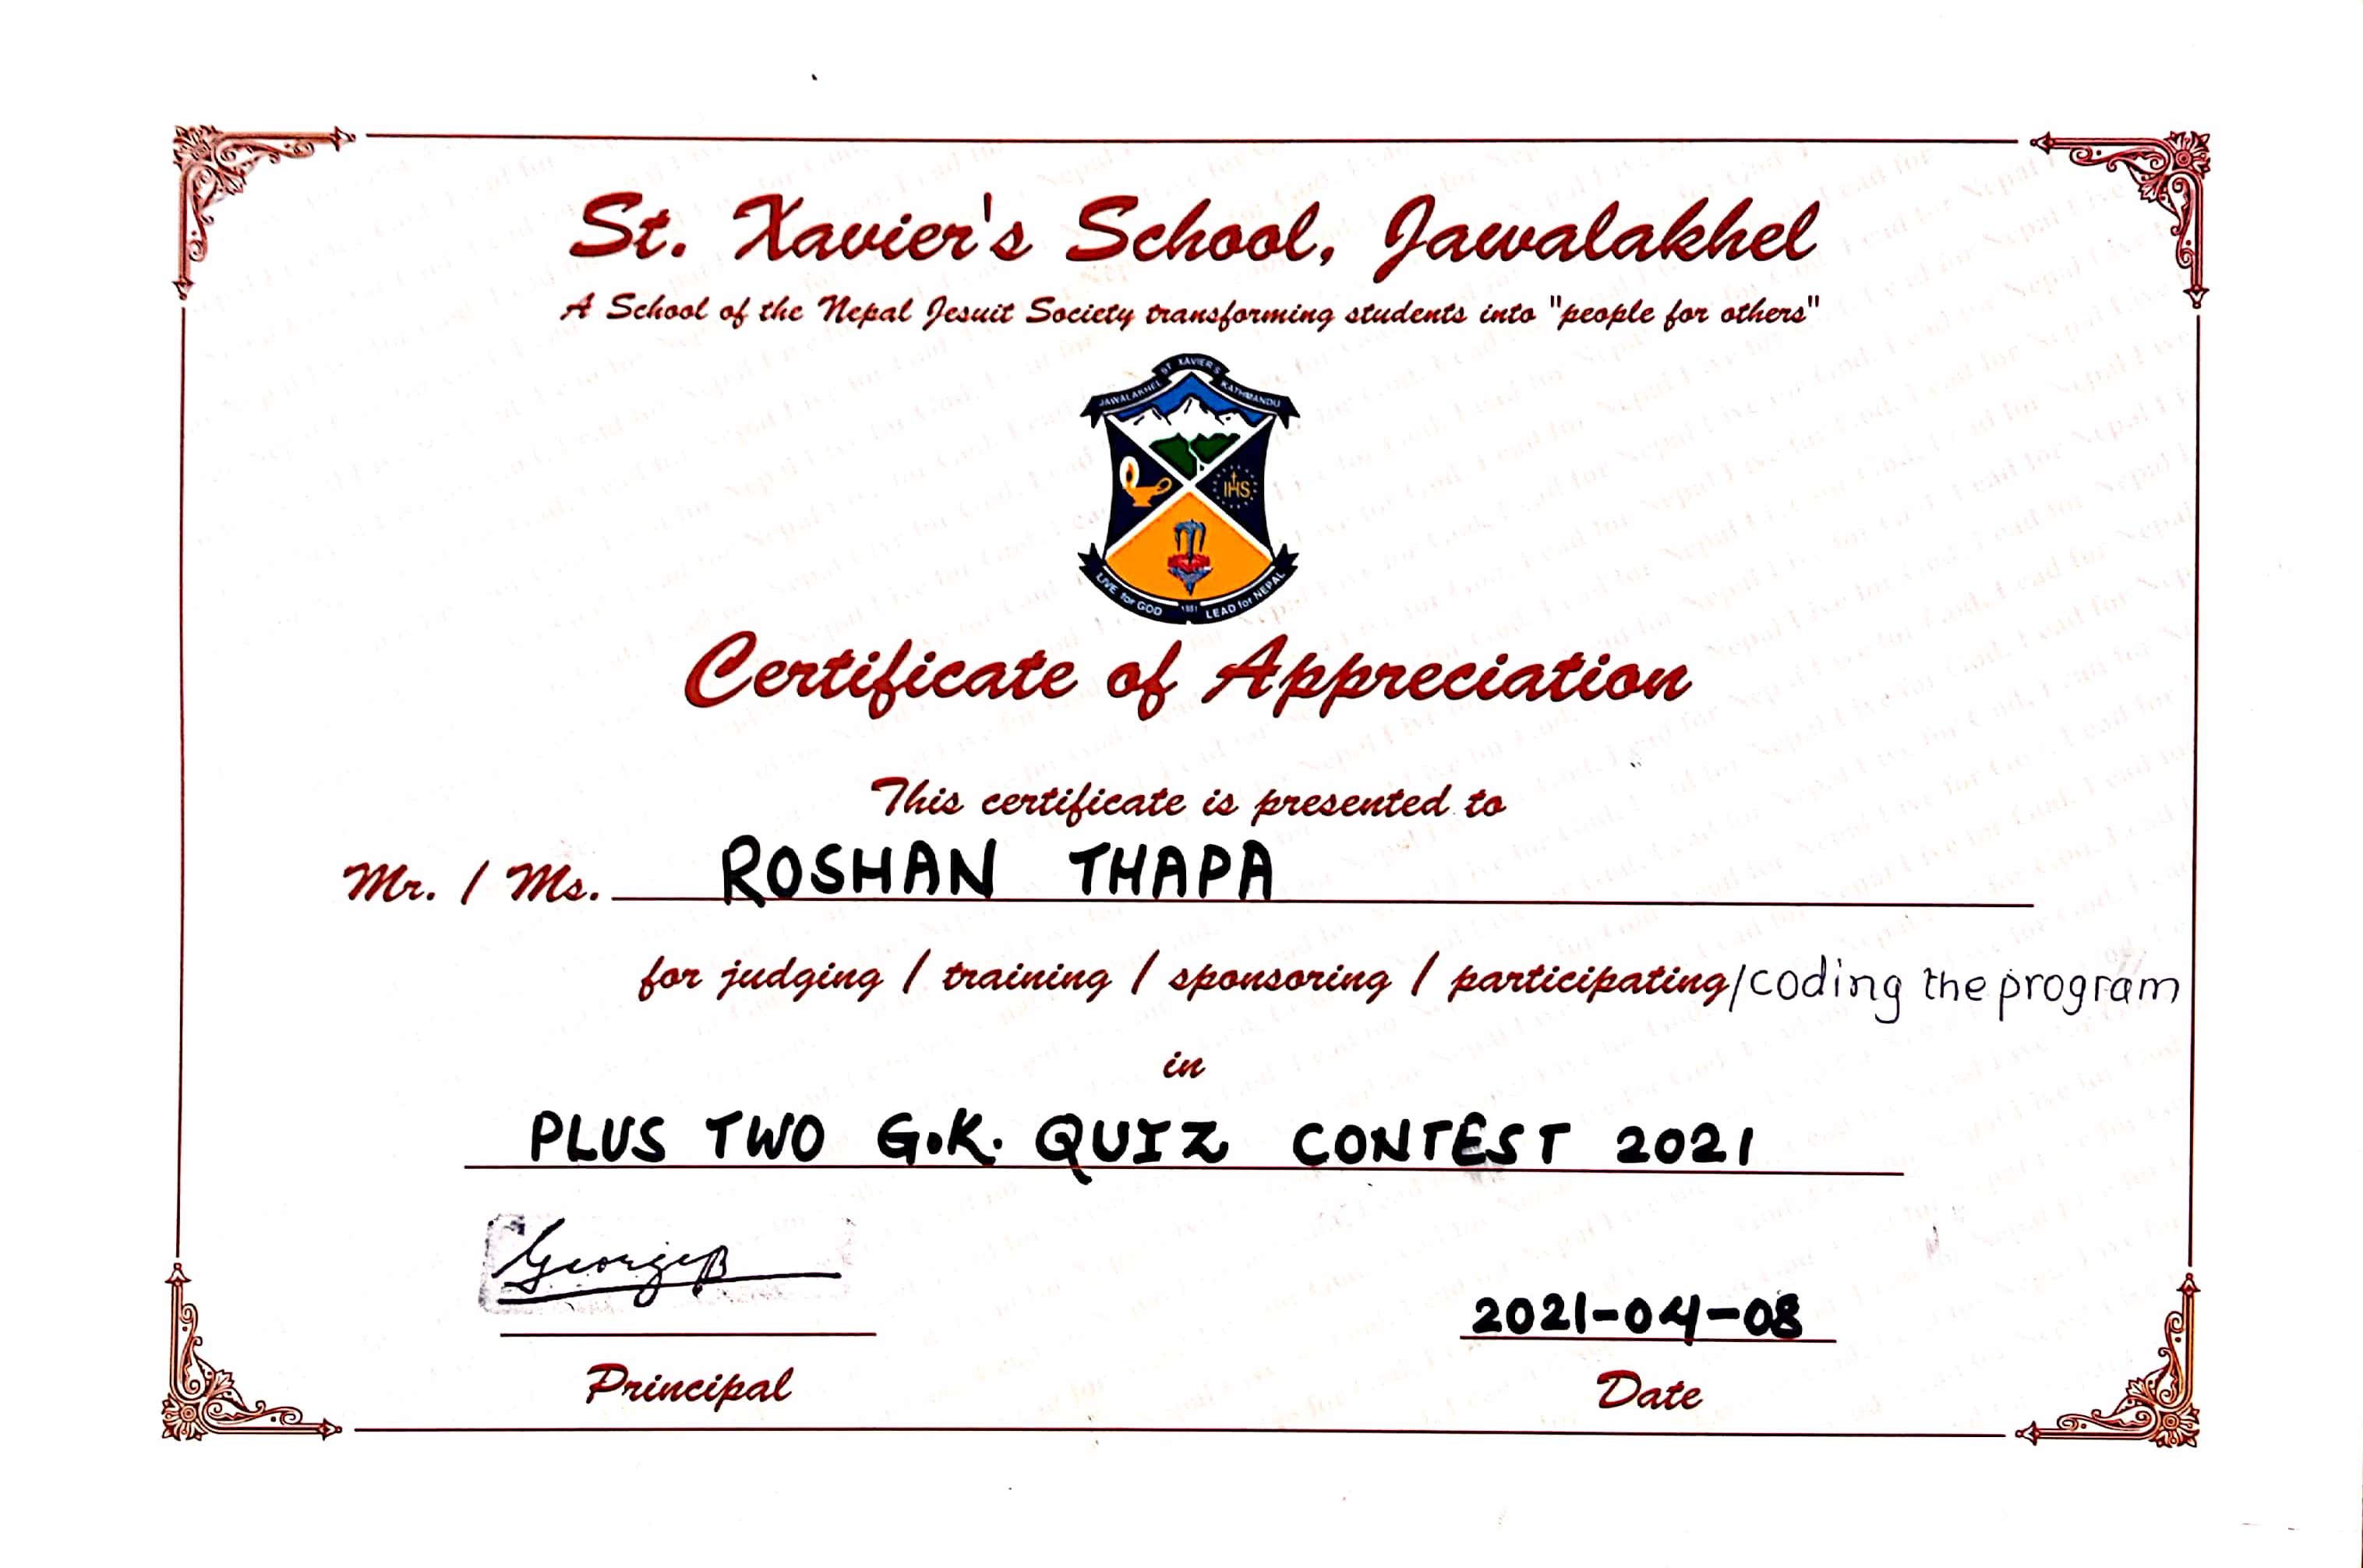 St. Xavier's School, Jawalakhel
A School of the Nepal Jesuit Society transforming students into "people for others"
ST. XAVIER'S
JAWALAKHEL KATHMANDU
IHS
LIVE for GOD 1951 LEAD for NEPAL
Certificate of Appreciation
This certificate is presented to
Mr. / Ms. ROSHAN THAPA
for judging / training / sponsoring / participating/coding the program
in
PLUS TWO G.K. QUIZ CONTEST 2021
2021-04-08
Principal Date